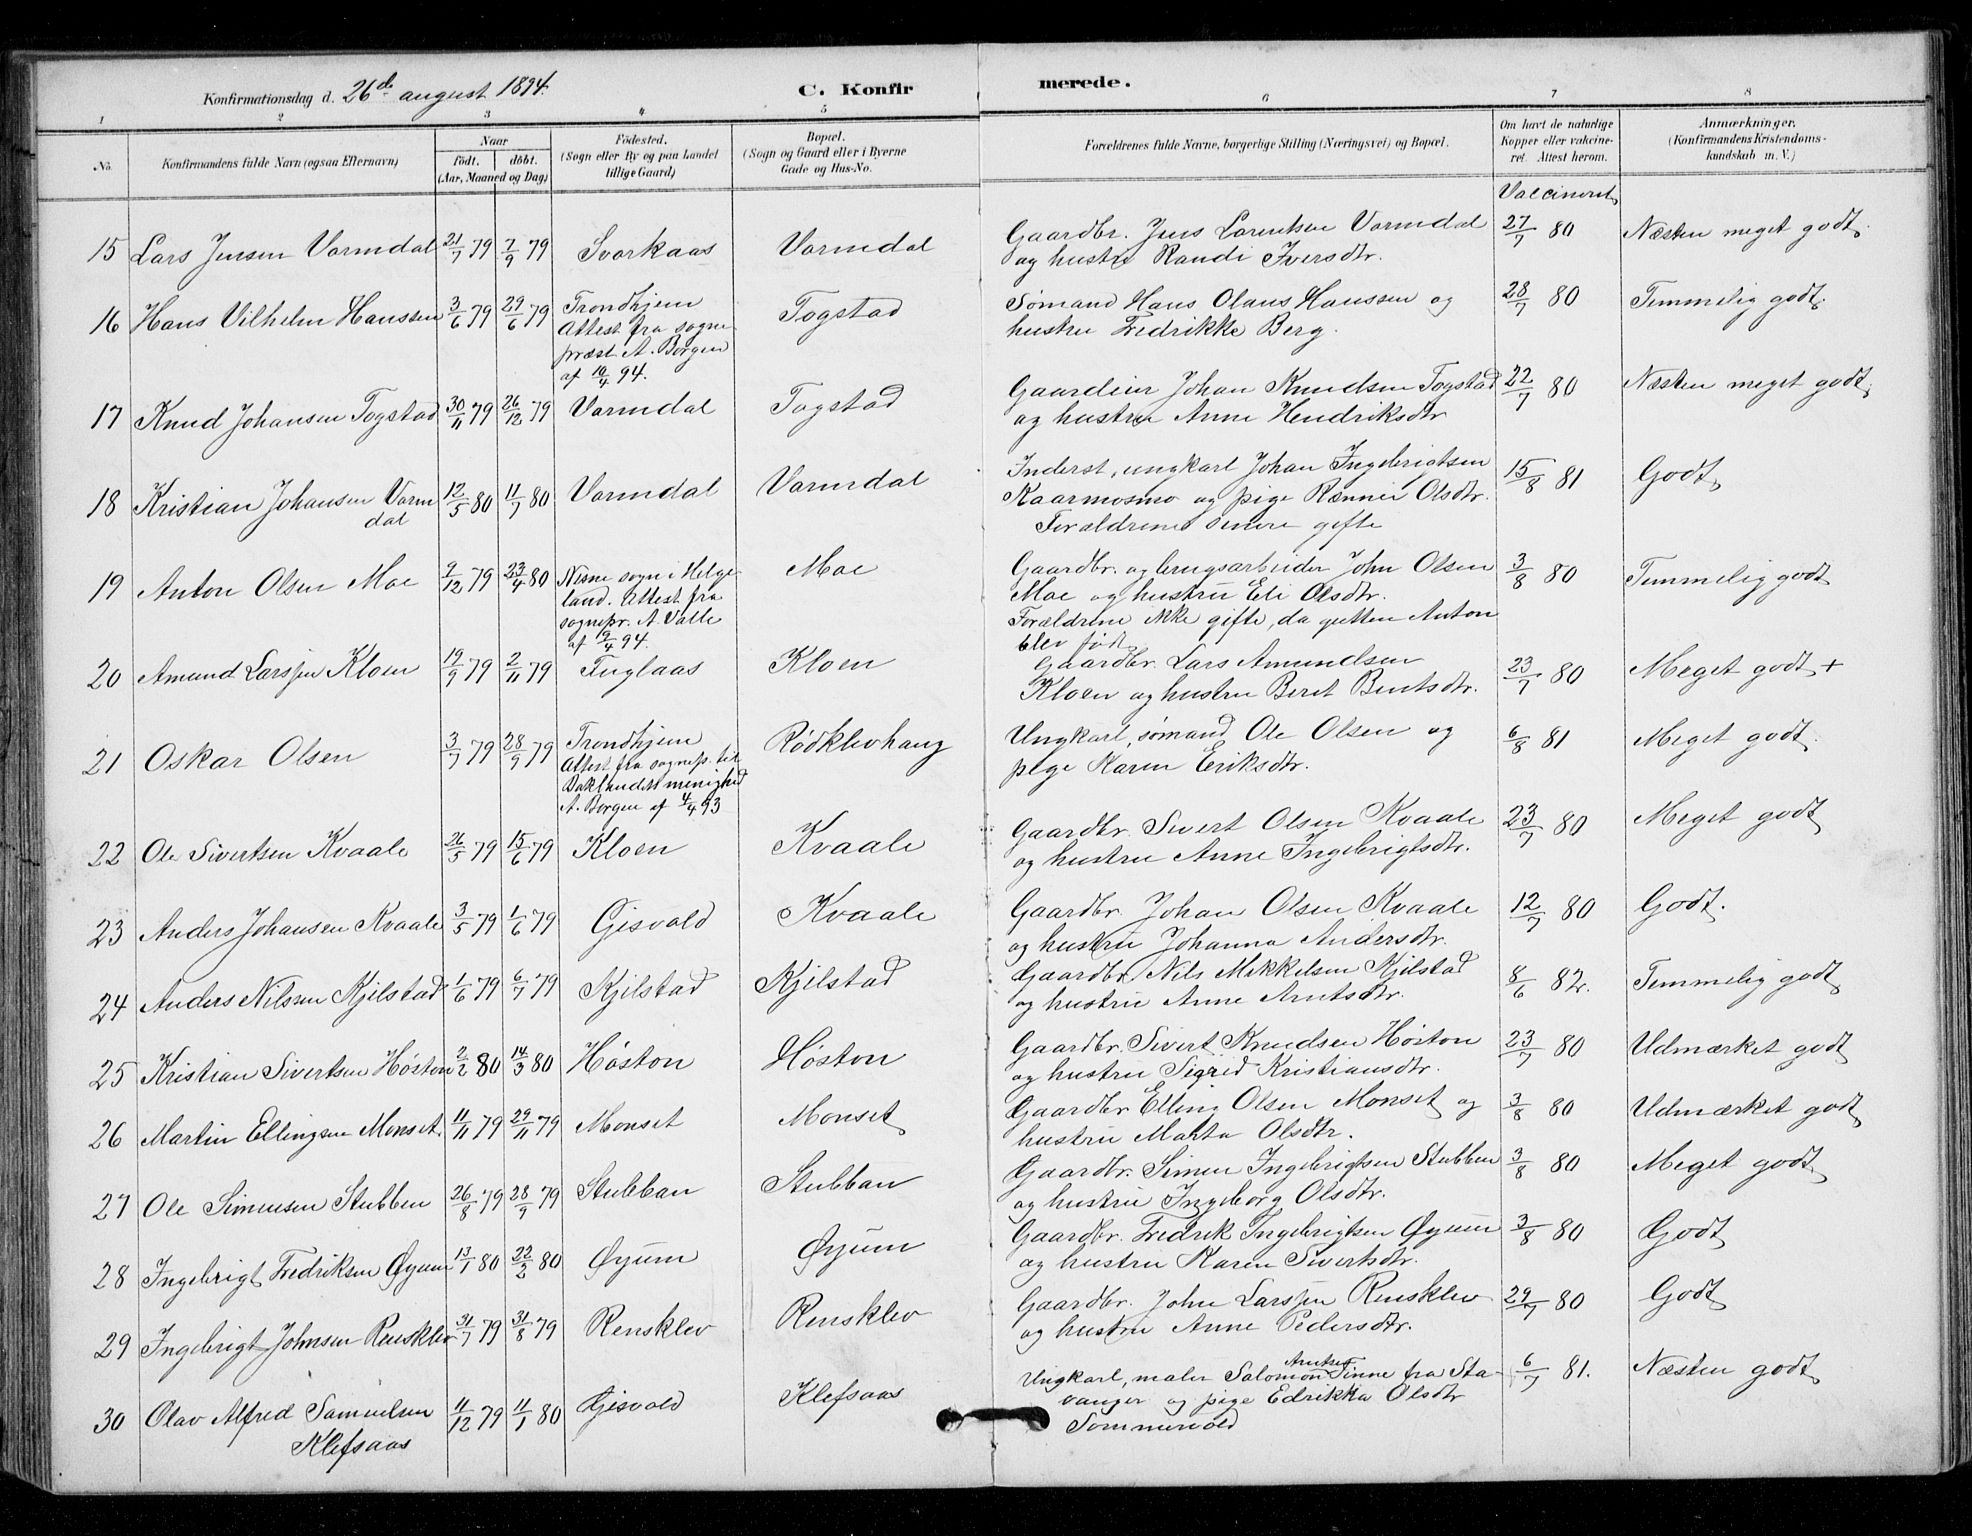 Konfirmationsdag d. 26de august 1894.
C. Konfirmerede.
1 2 3 4 5 6 7 8
No. Konfirmandens fulde Navn (ogsaa Efternavn)
Naar født. døbt. (Aar, Maaned og Dag)
Fødested. (Sogn eller By og paa Landet tillige Gaard)
Bopæl. (Sogn og Gaard eller i Byerne Gade og Hus-No.
Forældrenes fulde Navne, borgerlige Stilling (Næringsvei) og Bopæl.
Om havt de naturlige Kopper eller vakcineret. Attest herom.
Anmærkninger. (Konfirmandens Kristendomskundskab m. V.)
Vaccineret
15 Lars Jensen Vormdal 21/7 79 7/9 79 Svorkaas Vormdal Gaardbr. Jens Lorentsen Vormdal 27/7 80 Næsten meget godt.
og hustru Randi Iversdtr.
16 Hans Vilhelm Hanssen 3/6 79 29/6 79 Trondhjem Togstad Sømand Hans Olaus Hanssen og 28/7 80 Temmelig godt.
Attest fra sogne hustru Fredrikke Berg.
præst A. Borgen
af 10/4 94.
17 Knud Johansen Togstad 30/11 79 26/12 79 Vormdal Togstad Gaardeier Johan Knudsen Togstad 22/7 80 Næsten meget godt.
og hustru Anne Hendriksdtr
18 Kristian Johansen Vorm 12/5 80 11/7 80 Vormdal Vormdal Inderst, ungkarl Johan Ingebrigtsen 15/8 81 Godt
dal Kaarmosmo og pige Rønnei Olsdtr.
Forældrene senere gifte
19 Anton Olsen Moe 9/12 79 23/4 80 Nesne sogn i Helge Moe Gaardbr. og brugsarbeider John Olsen 3/8 80 Temmelig godt
land. Attest fra Moe og hustru Eli Olsdtr.
sognepr. A. Valle Forældrene ikke gifte, da gutten Anton
af 9/4 94. blev født
20 Amund Larssen Kloen 19/9 79 2/11 79 Fuglaas Kloen Gaardbr. Lars Amundsen 23/7 80 Meget godt +
Kloen og hustru Beret Bentsdtr.
21 Oskar Olsen 3/7 79 28/9 79 Trondhjem Rødklevhaug Ungkarl, sømand Ole Olsen og 6/8 81 Meget godt.
Attest fra sognep. til pige Karen Eriksdtr.
Baklandets menighed
A. Borgen af 4/4 93
22 Ole Sivertsen Kvaale 26/5 79 15/6 79 Kloen Kvaale Gaardbr. Sivert Olsen Kvaale 23/7 80 Meget godt
og hustru Anne Ingebrigtsdtr.
23 Anders Johansen Kvaale 3/5 79 1/6 79 Gisvold Kvaale Gaardbr. Johan Olsen Kvaale 12/7 80 Godt.
og hustru Johanna Andersdtr.
24 Anders Nilssen Kjelstad 1/6 79 6/7 79 Kjelstad Kjelstad Gaardbr. Nils Mekkelsen Kjelstad 8/6 82. Temmelig godt
og hustru Anne Arntsdtr.
25 Kristian Sivertsen Høston 2/2 80 14/3 80 Høston Høston Gaardbr. Sivert Knudsen Høston 23/7 80 Udmærket godt
og hustru Sigrid Kristiansdtr.
26 Martin Ellingsen Monset. 11/11 79 29/11 79 Monset Monset Gaardbr Elling Olsen Monset og 3/8 80 Udmærket godt
hustru Marta Olsdtr.
27 Ole Simensen Stubben 26/8 79 28/9 79 Stubban Stubban Gaardbr. Simen Ingebrigtsen Stubben 3/8 80 Meget godt
og hustru Ingeborg Olsdtr.
28 Ingebrigt Fredriksen Øyum 13/1 80 22/2 80 Øyum Øyum Gaardbr. Fredrik Ingebrigtsen Øyum 3/8 80 Godt
og hustru Karen Sivertsdtr.
29 Ingebrigt Johnsen Rensklev 31/7 79 31/8 79 Rensklev Rensklev Gaardbr. John Larssen Rensklev 29/7 80 Godt
og hustru Anne Pedersdtr.
30 Olav Alfred Samuelsen 11/12 79 11/1 80 Gisvold Klefsaas Ungkarl, maler Salomon Arntsen Tinne fra Sta 6/7 81. Næsten godt
Klefsaas vanger og pige Edrikka Olsdtr
Sommervold